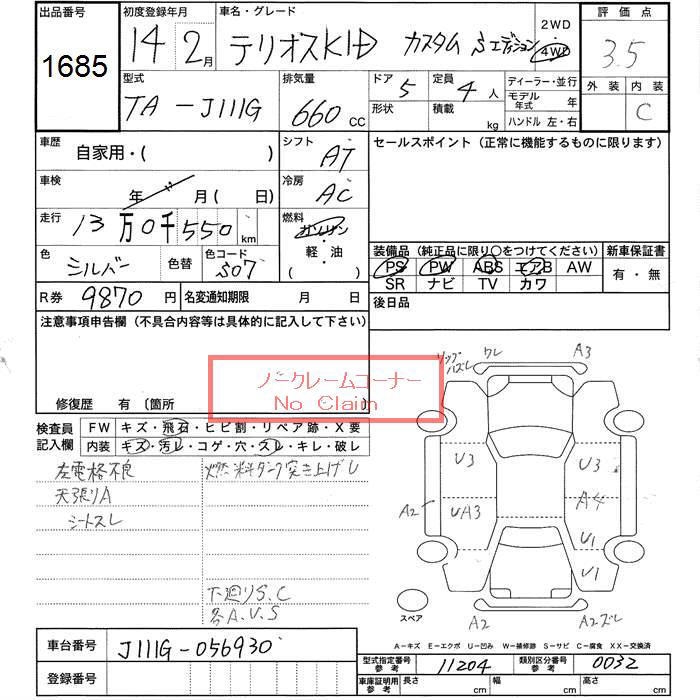 出品番号
1685
初度登録年月
14年2月
車名・グレード
テリオスKID カスタム Sエディション
2WD
4WD
評価点
3.5
型式
TA-J111G
排気量
660 CC
ドア
5
形状
定員
4人
積載
kg
ディーラー・並行
モデル年式 年
ハンドル 左・右
外装 内装
C
車歴
自家用・( )
シフト
AT
セールスポイント (正常に機能するものに限ります)
車検
年 月 ( 日)
冷房
AC
走行
13万0千550km
燃料
ガソリン
・
軽・油
( )
色
シルバー
色替
色コード
S07
装備品 (純正品に限り○をつけてください)
新車保証書
PS PW ABS エアB AW
SR ナビ TV カワ
有・無
R券 9870円
名変通知期限 月 日
後日品
注意事項申告欄 (不具合内容等は具体的に記入して下さい)
ノークレームコーナー
No Claim
修復歴 有 〔箇所 〕
検査員記入欄
FW キズ・飛石・ヒビ割・リペア跡・X要
内装 キズ・汚レ・コゲ・穴・スレ・キレ・破レ
左電格不良
天張りA
シートスレ
燃料タンク突き上げし
下廻りS.C
各A.U.S
リップハズレ
ワレ
A3
U3
U3
A2
UA3
A4
U1
U1
スペア
A2
A2ズレ
A-キズ E-エクボ U-凹み W-補修跡 S-サビ C-腐食 XX-交換済
車台番号
J111G-056930
登録番号
型式指定番号 参考
11204
類別区分番号 参考
0032
車庫証明用 参考
長さ cm
幅 cm
高さ cm